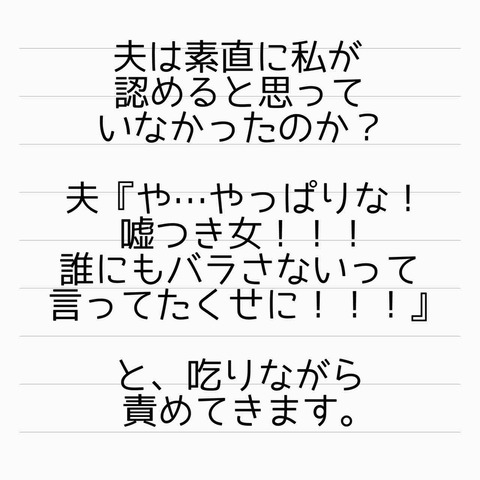 夫は素直に私が
認めると思って
いなかったのか？
夫『や…やっぱりな！
嘘つき女！！！
誰にもバラさないって
言ってたくせに！！！』
と、吃りながら
責めてきます。